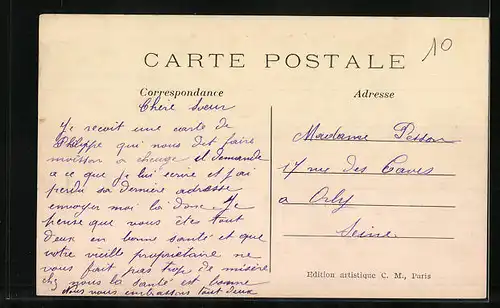 10
CARTE POSTALE
Correspondance
Adresse
Chère Soeur
Je recoit une carte de
Philippe qui nous dit faire
moisson a il demande
a ce que je lui serive et j'ai
perdu sa dernière adresse
envoyer moi la donc. Je
pense que vous êtes tout
deux en bonne santé et que
votre vieille propriétaire ne
vous fait pas trop de misère
chez nous la santé est bonne
Nous vous embrassons tout deux
Madame Pesson
17 rue des Caves
a Orly
Seine
Edition artistique C. M., Paris